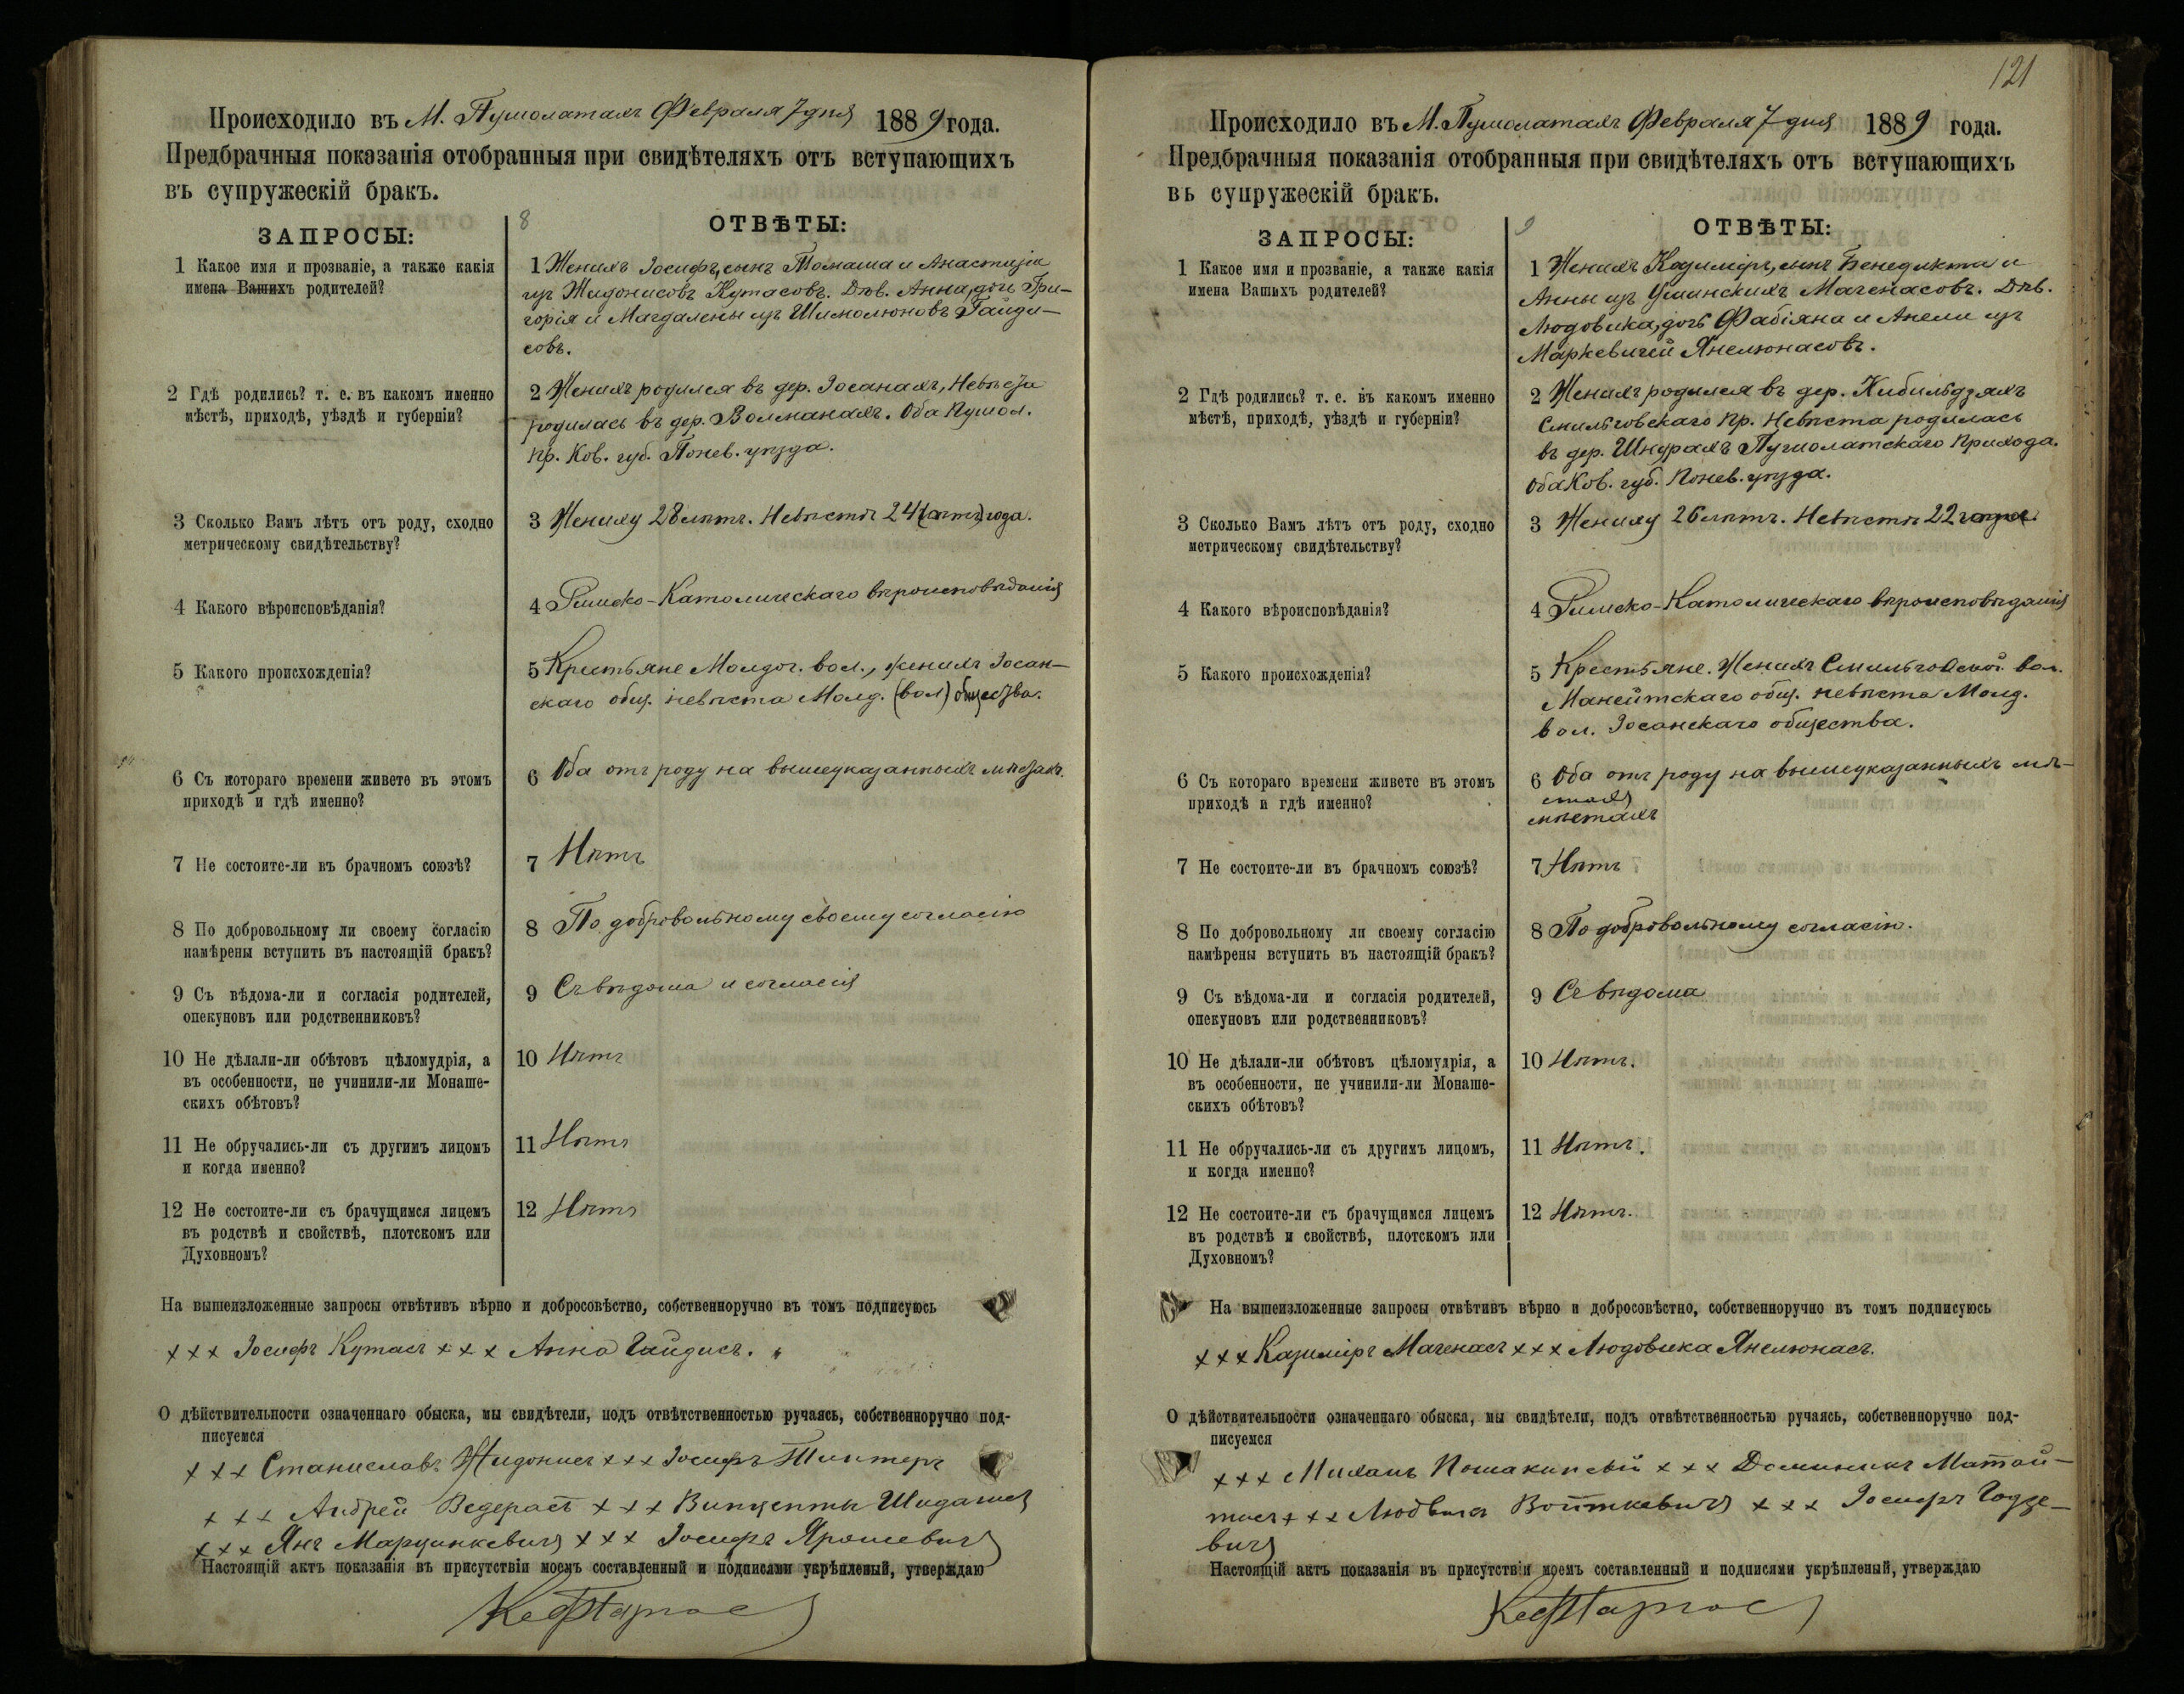 Происходило въ М. Пушолатахъ Февраля 7 дня 1889 года.
Предбрачныя показанія отобранныя при свидѣтеляхъ отъ вступающихъ
въ супружескій бракъ.
8
ЗАПРОСЫ:
ОТВѢТЫ:
1 Какое имя и прозваніе, а также какія
имена Вашихъ родителей?
1 Женихъ Іосифъ, сынъ Томаша и Анастазіи
изъ Жидонисовъ Кутасовъ. Дѣв. Анна, дочь Гри-
горія и Магдалены изъ Шимолюновъ Гайди-
совъ.
2 Гдѣ родились? т. е. въ какомъ именно
мѣстѣ, приходѣ, уѣздѣ и губерніи?
2 Женихъ родился въ дер. Іосанахъ, Невѣста
родилась въ дер. Волманахъ. Оба Пушол.
пр. Ков. губ. Понев. уѣзда.
3 Сколько Вамъ лѣтъ отъ роду, сходно
метрическому свидѣтельству?
3 Жениху 28 лѣтъ. Невѣстѣ 24 (лѣтъ) года.
4 Какого вѣроисповѣданія?
4 Римско-Католическаго вѣроисповѣданія
5 Какого происхожденія?
5 Крестьяне Молдог. вол., женихъ Іосан-
скаго общ. невѣста Молд. (вол) общества.
6 Съ котораго времени живете въ этомъ
приходѣ и гдѣ именно?
6 Оба отъ роду на вышеуказанныхъ мѣстахъ.
7 Не состоите-ли въ брачномъ союзѣ?
7 Нѣтъ
8 По добровольному ли своему согласію
намѣрены вступить въ настоящій бракъ?
8 По добровольному своему согласію
9 Съ вѣдома-ли и согласія родителей,
опекуновъ или родственниковъ?
9 Съ вѣдома и согласія
10 Не дѣлали-ли обѣтовъ цѣломудрія, а
въ особенности, не учинили-ли Монаше-
скихъ обѣтовъ?
10 Нѣтъ
11 Не обручались-ли съ другимъ лицомъ
и когда именно?
11 Нѣтъ
12 Не состоите-ли съ брачущимся лицемъ
въ родствѣ и свойствѣ, плотскомъ или
Духовномъ?
12 Нѣтъ
На вышеизложенные запросы отвѣтивъ вѣрно и добросовѣстно, собственноручно въ томъ подписуюсь
+++ Іосифъ Кутасъ +++ Анна Гайдисъ.
О дѣйствительности означеннаго обыска, мы свидѣтели, подъ отвѣтственностью ручаясь, собственноручно под-
писуемся
+++ Станиславъ Жидонисъ +++ Іосифъ Тинтеръ
+++ Андрей +++ Винценты
+++ Янъ Марцинкевичъ +++ Іосифъ Ярошевичъ
Настоящій актъ показанія въ присутствіи моемъ составленный и подписями укрѣпленый, утверждаю
121
Происходило въ М. Пушолатахъ Февраля 7 дня 1889 года.
Предбрачныя показанія отобранныя при свидѣтеляхъ отъ вступающихъ
въ супружескій бракъ.
9
ЗАПРОСЫ:
ОТВѢТЫ:
1 Какое имя и прозваніе, а также какія
имена Вашихъ родителей?
1 Женихъ Казиміръ, сынъ Бенедикта и
Анны изъ Уминскихъ Магенасовъ. Дѣв.
Людовика, дочь Фабіяна и Анели изъ
Маркевичей Янелюнасовъ.
2 Гдѣ родились? т. е. въ какомъ именно
мѣстѣ, приходѣ, уѣздѣ и губерніи?
2 Женихъ родился въ дер. Кибильдзяхъ
Смильговскаго пр. Невѣста родилась
въ дер. Шнурахъ Пушолатскаго прихода.
Оба Ков. губ. Понев. уѣзда.
3 Сколько Вамъ лѣтъ отъ роду, сходно
метрическому свидѣтельству?
3 Жениху 26 лѣтъ. Невѣстѣ 22 года.
4 Какого вѣроисповѣданія?
4 Римско-Католическаго вѣроисповѣданія
5 Какого происхожденія?
5 Крестьяне. Женихъ Смильговской вол.
Манейтскаго общ. невѣста Молд.
вол. Іосанскаго общества.
6 Съ котораго времени живете въ этомъ
приходѣ и гдѣ именно?
6 Оба отъ роду на вышеуказанныхъ мѣ-
стахъ
мѣстахъ
7 Не состоите-ли въ брачномъ союзѣ?
7 Нѣтъ
8 По добровольному ли своему согласію
намѣрены вступить въ настоящій бракъ?
8 По добровольному согласію.
9 Съ вѣдома-ли и согласія родителей,
опекуновъ или родственниковъ?
9 Съ вѣдома
10 Не дѣлали-ли обѣтовъ цѣломудрія, а
въ особенности, не учинили-ли Монаше-
скихъ обѣтовъ?
10 Нѣтъ.
11 Не обручались-ли съ другимъ лицомъ,
и когда именно?
11 Нѣтъ.
12 Не состоите-ли съ брачущимся лицемъ
въ родствѣ и свойствѣ, плотскомъ или
Духовномъ?
12 Нѣтъ.
На вышеизложенные запросы отвѣтивъ вѣрно и добросовѣстно, собственноручно въ томъ подписуюсь
+++ Казиміръ Магенасъ +++ Людовика Янелюнасъ.
О дѣйствительности означеннаго обыска, мы свидѣтели, подъ отвѣтственностью ручаясь, собственноручно под-
писуемся
+++ Михаилъ +++ Доминикъ Матай-
тисъ +++ Людвигъ Войткевичъ +++ Іосифъ Годзе-
вичъ
Настоящій актъ показанія въ присутствіи моемъ составленный и подписями укрѣпленый, утверждаю